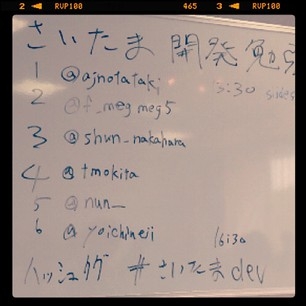 2 RVP100 465 3 RVP100
さいたま 開発 勉
1 @ajnotataki
13:30
2 @f_meg meg5
3 @shun_nakahara
4 @tmokita
5 @nun_
6 @yoichineji
16:30
ハッシュタグ #さいたまdev